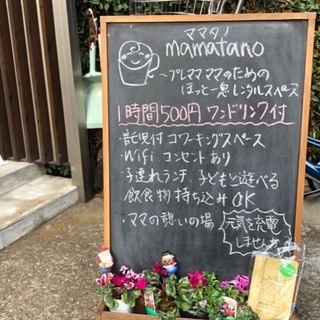 ママタノ
mamatano
～プレママママのための
ほっと一息レンタルスペース
1時間500円 ワンドリンク付
・託児付コワーキングスペース
・Wifi コンセントあり
・子連れランチ、子どもと遊べる
飲食物持ち込みOK
・ママの憩いの場
元気を充電
しませんか